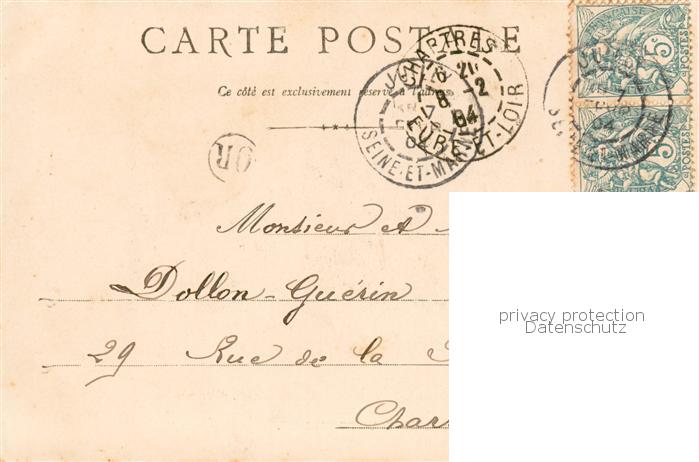 CARTE POSTALE
Ce côté est exclusivement réservé à l'adresse
CHARTRES
EURE-ET-LOIR
SEINE-ET-MARNE
OR
5c
POSTES
5c
Monsieur et
Dollon-Guérin
29 Rue de la
Char
privacy protection
Datenschutz